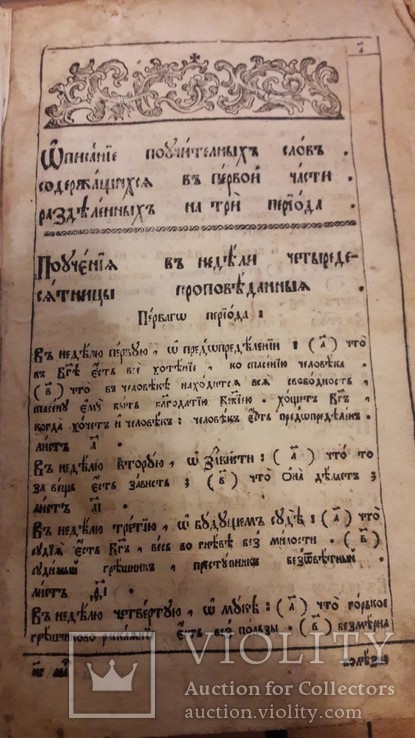 Ѡписанїе поучителныхъ словъ .
содержащихсѧ въ первой части .
раздѣленныхъ на три перїода .
Поученїѧ въ недѣли четыреде-
сѧтницы проповѣданныѧ .
Перваго перїода :
Въ недѣлю первую , ѡ предѡпредѣленїи : ( а҃ ) что
въ Бз҃ѣ есть всѐ хотѣнїе , ко спасенїю человѣка .
( в҃ ) что въ человѣкѣ находитсѧ всѧ свободность ,
спасену ему быть благодатїю Бж҃їею . хощетъ Бг҃ъ ,
когда хочетъ и человѣкъ : человѣкъ есть предѡпредѣлѧ .
листъ а҃ .
Въ недѣлю вторую , ѡ зависти : ( а҃ ) что то
за вещь есть зависть ; ( в҃ ) что она дѣлаетъ ;
листъ а҃і .
Въ недѣлю третїю , ѡ будущемъ судѣ : ( а҃ ) что
судїѧ есть Бг҃ъ , весь во гнѣвѣ без милости . ( в҃ )
судимый грѣшникъ , преступникъ безѿвѣтный .
листъ
Въ недѣлю четвертую , ѡ мукѣ : ( а҃ ) что горькое
грѣшниково рыданїе есть без пользы . ( в҃ ) безмѣрна
VIOLITY
Auction for Collectors
auction.violity.com